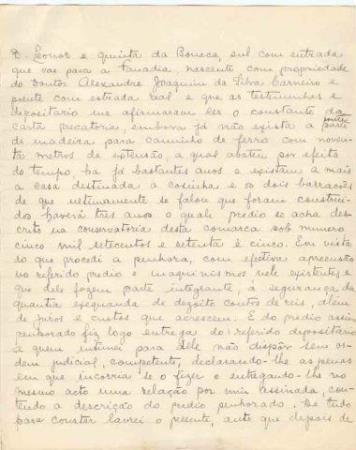 D. Leonor e quinta da Boneca, sul com entrada
que vai para a Panadia, nascente com propriedade
do Doutor Alexandre Joaquim da Silva Carneiro e
poente com estrada real e que as testimunhas e
depositario me afirmaram ser o constante da
carta precatoria, embora já não exista a ponte
de madeira para caminho de ferro com noven-
ta metros de extensão, a qual abateu por efeito
do tempo, ha já bastantes anos e existam a mais
a casa destinada a cosinha e os dois barracões
de que ultimamente se falou que foram construi-
dos haverá três anos o qual predio se acha des-
crito na conservatoria desta comarca sob numero
cinco mil setecentos e setenta e cinco. Em vista
do que procedi a penhora, com efectiva apreensão
no referido predio e maquinismos nele existentes e
que dele fazem parte integrante, á segurança da
quantia exequenda de dezoito contos de réis, alem
de juros e custas que acrescem. E do predio assim
penhorado fiz logo entrega do referido depositario
a quem intimei para dele não dispôr sem or-
dem judicial, competente, declarando-lhe as penas
em que incorria se o fizer e entregando-lhe no
mesmo acto uma relação por mim assinada, con-
tendo a descrição do predio penhorado. De tudo
para constar lavrei o presente, auto que depois de